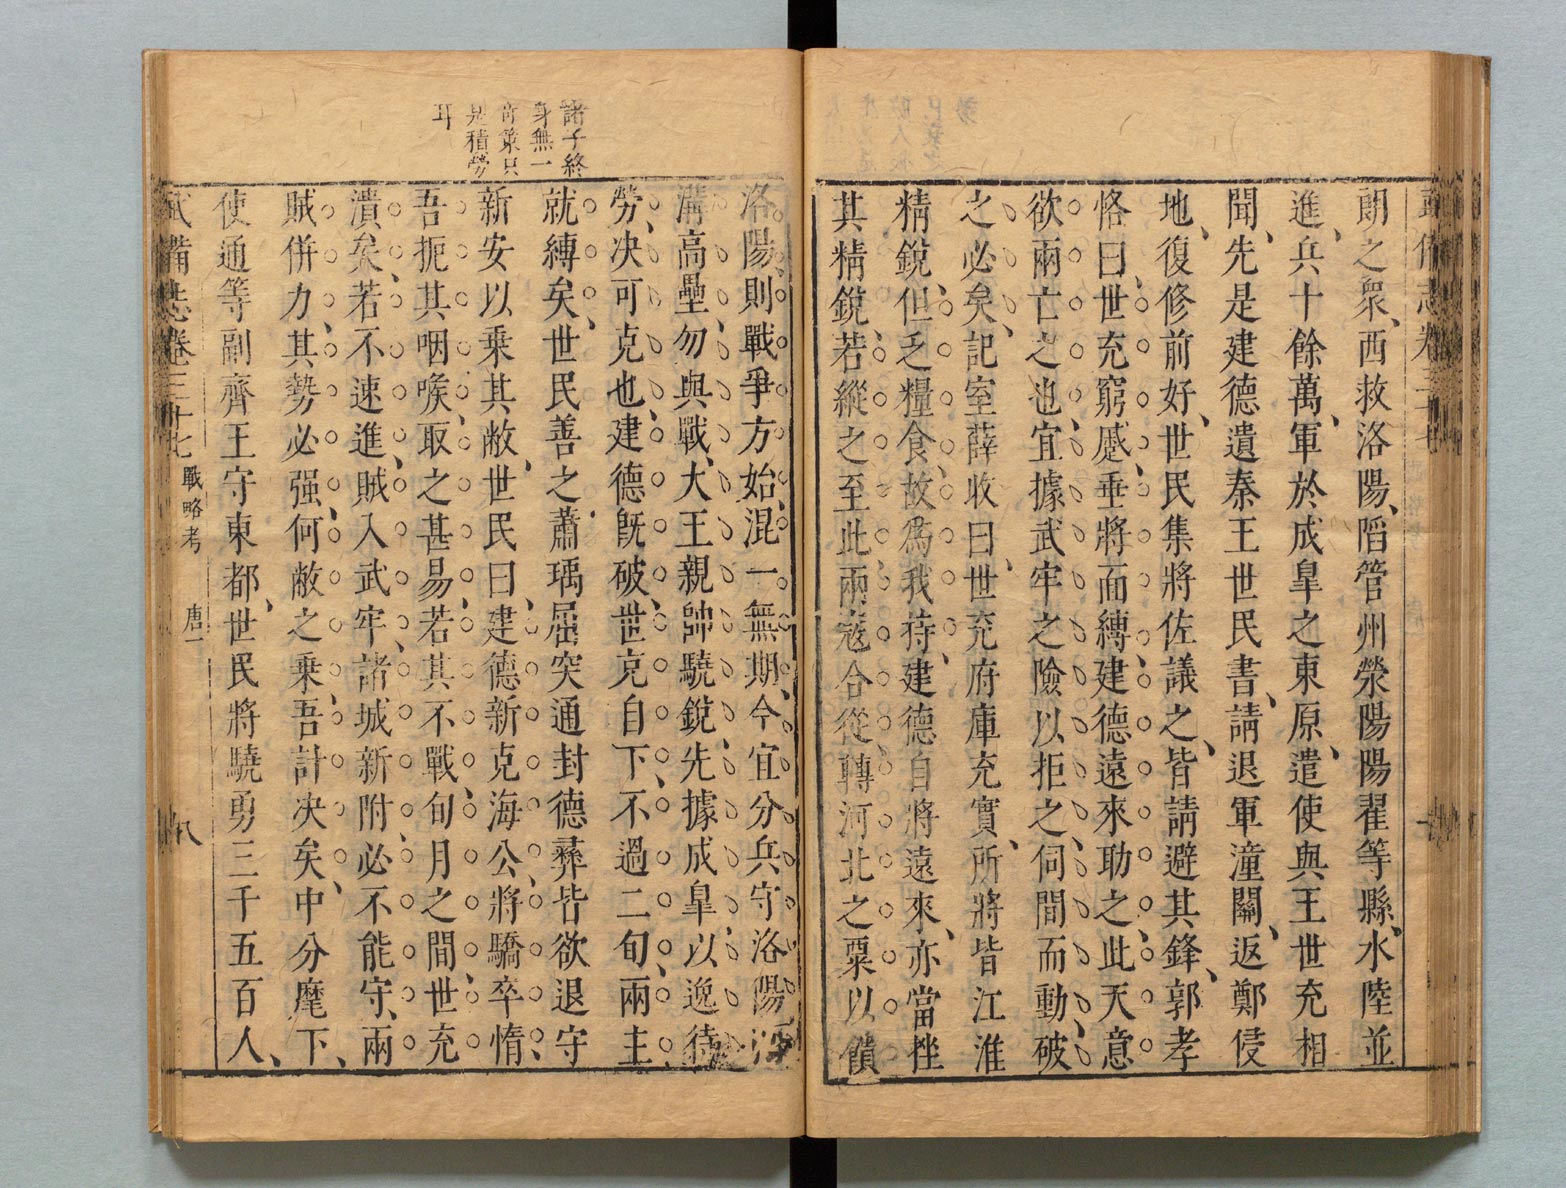 朗之衆西救洛陽陷管州滎陽陽翟等縣水陸並
進兵十餘萬軍於成臯之東原遣使與王世充相
聞先是建德遺秦王世民書請退軍潼關返鄭侵
地復修前好世民集將佐議之皆請避其鋒郭孝
恪曰世充窮蹙垂將面縛建德遠來助之此天意
欲兩亡之也宜據武牢之險以拒之伺間而動破
之必矣記室薛收曰世充府庫充實所將皆江淮
精銳但乏糧食故爲我持建德自將遠來亦當挫
其精銳若縱之至此兩寇合從轉河北之粟以饋
洛陽則戰爭方始混一無期今宜分兵守洛陽深
溝高壘勿與戰大王親帥驍銳先據成臯以逸待
勞决可克也建德旣破世克自下不過二旬兩主
就縛矣世民善之蕭瑀屈突通封德彞皆欲退守
新安以乗其敝世民曰建德新克海公將驕卒惰
吾扼其咽喉取之甚易若其不戰旬月之間世充
潰矣若不速進賊入武牢諸城新附必不能守兩
賊併力其勢必强何敝之乗吾計决矣中分麾下
使通等副齊王守東都世民將驍勇三千五百人
武備志卷三十七 戰略考 唐一 八
諸子終
身無一
竒策只
是積勞
耳